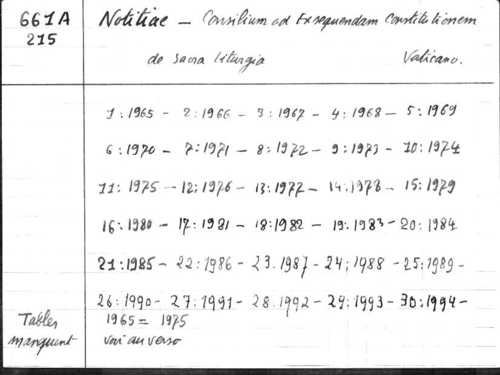 661A
215
Notitiae — Consilium ad Exsequendam Constitutionem
de Sacra Liturgia Vaticano.
1:1965 - 2:1966 - 3:1967 - 4:1968 - 5:1969
6:1970 - 7:1971 - 8:1972 - 9:1973 - 10:1974
11:1975 - 12:1976 - 13:1977 - 14:1978 - 15:1979
16:1980 - 17:1981 - 18:1982 - 19:1983 - 20:1984
21:1985 - 22:1986 - 23.1987 - 24;1988 - 25:1989 -
26:1990 - 27:1991 - 28.1992 - 29:1993 - 30:1994 -
Tables
manquent
1965 = 1975
voir au verso